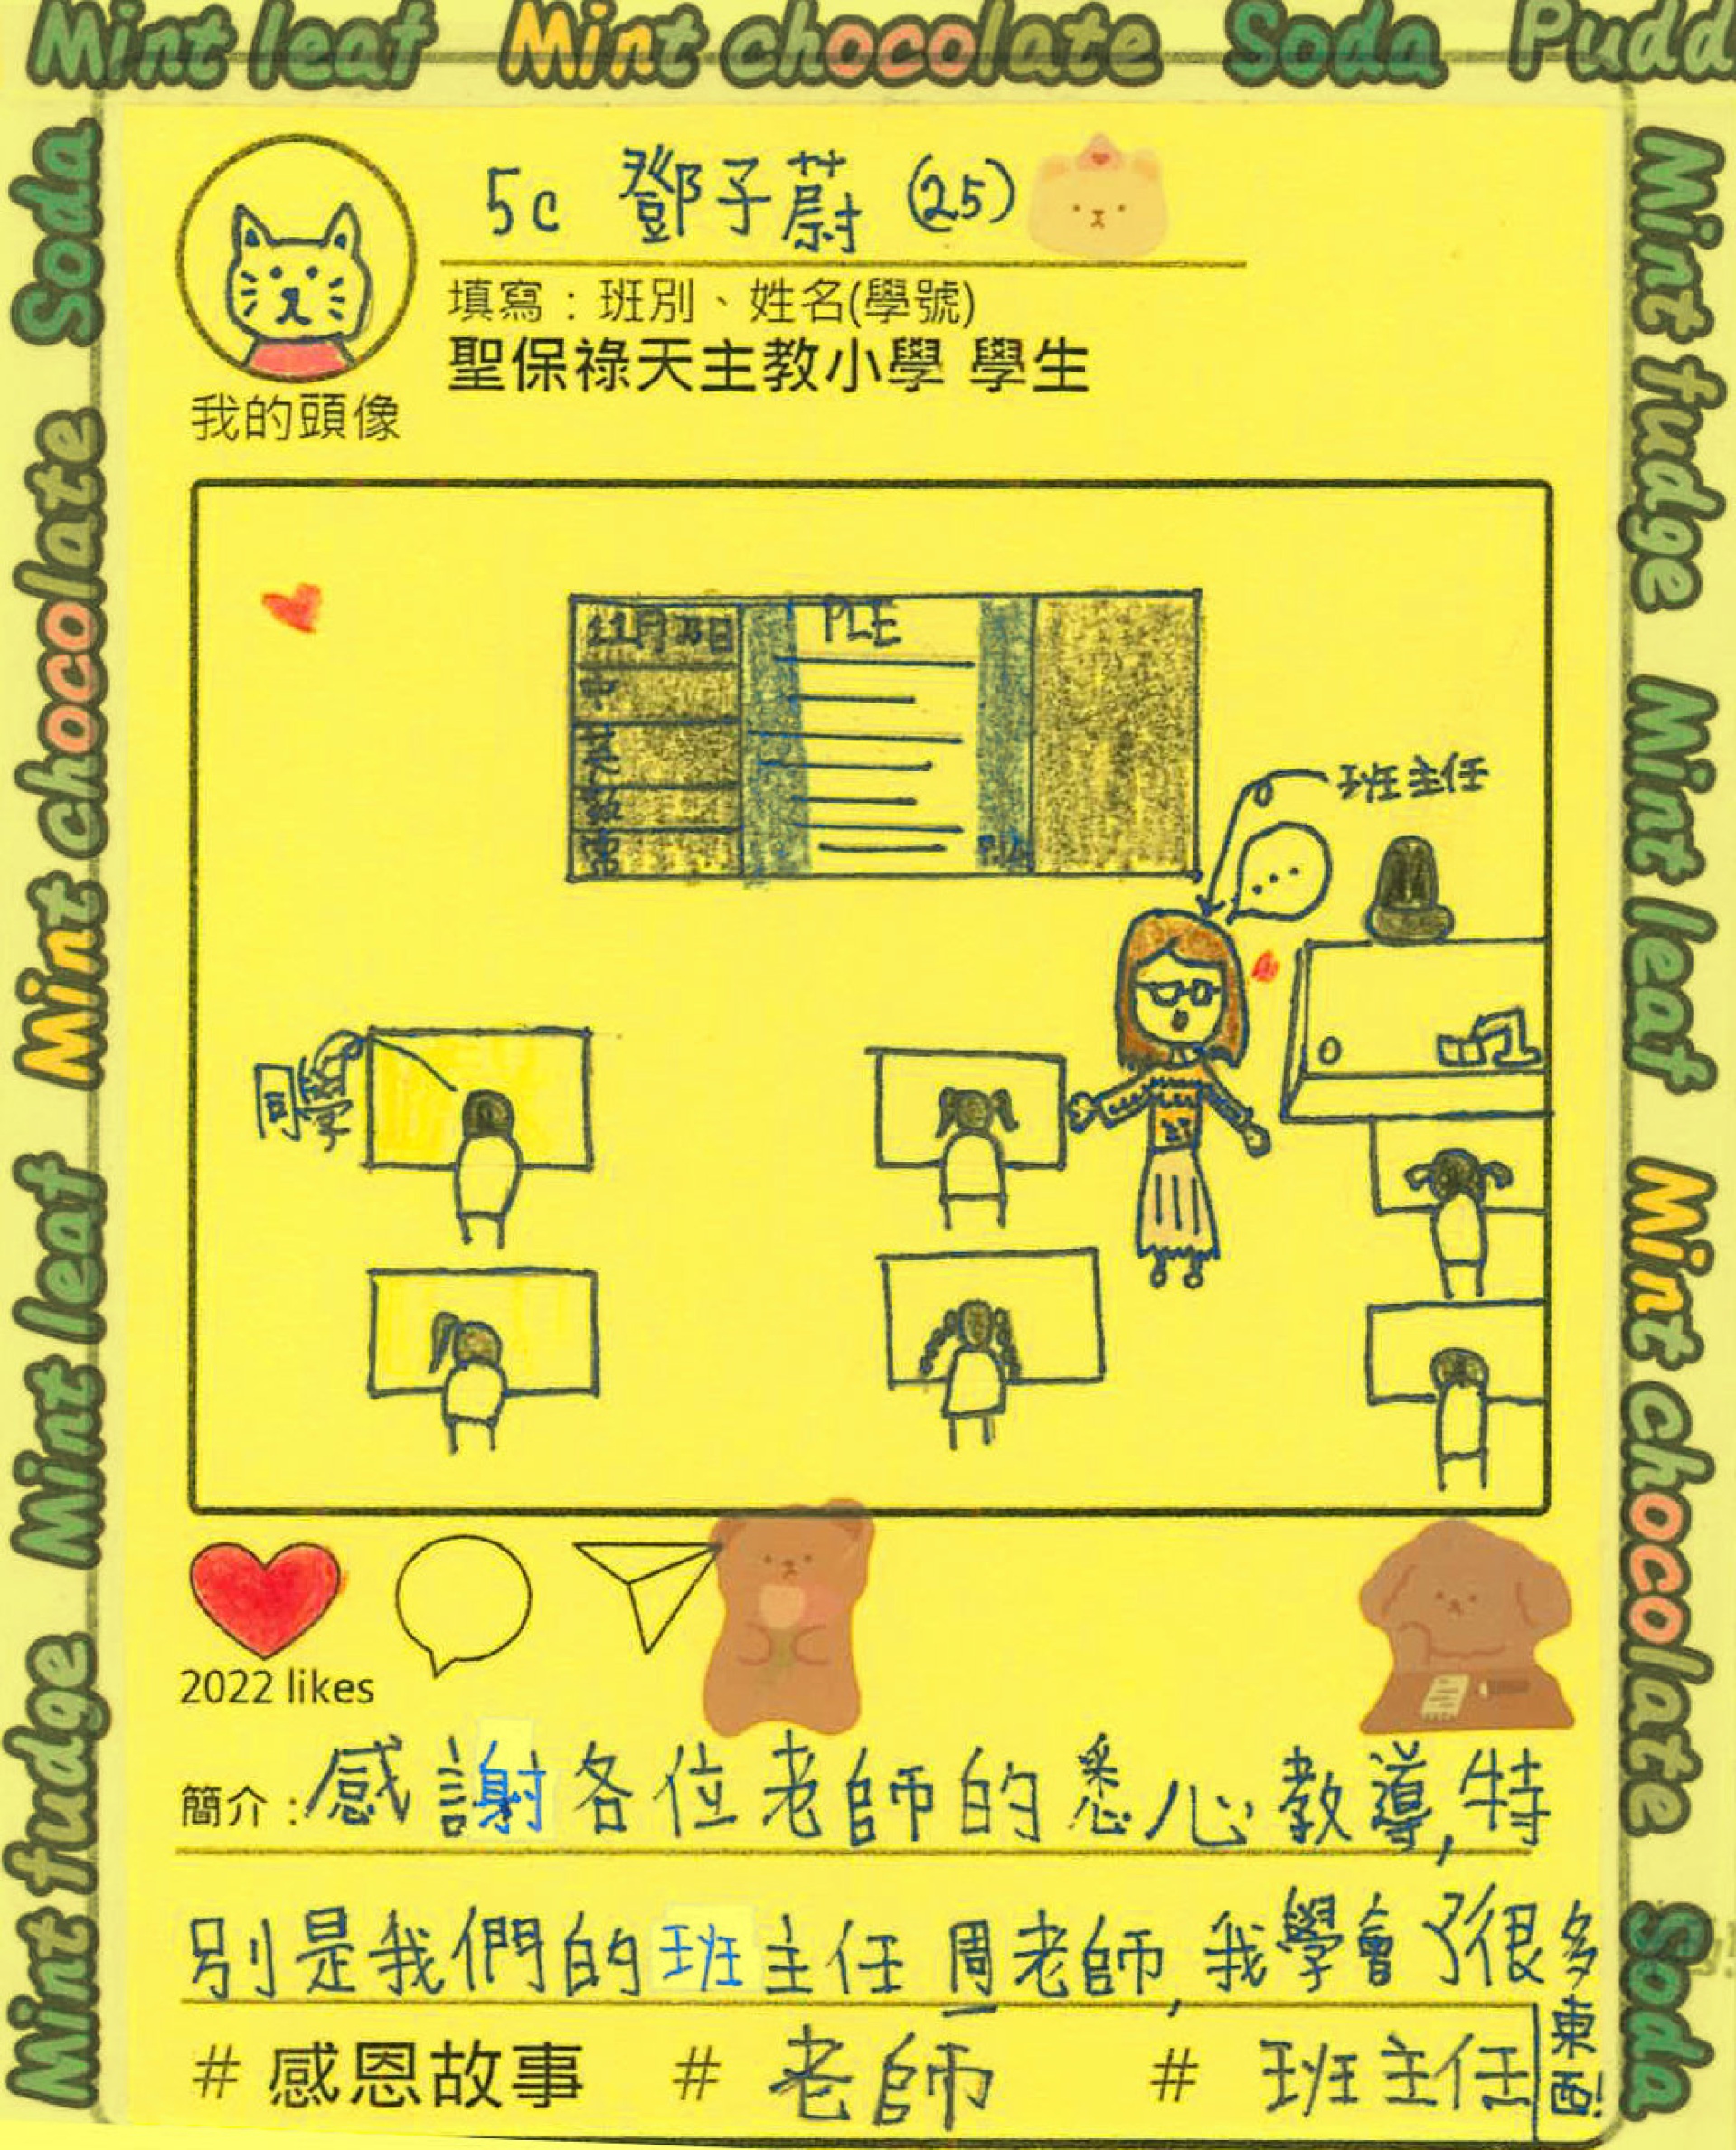 Mint leaf Mint chocolate Soda Pudd
Soda
Mint chocolate
Mint leaf
Mint fudge
Mint fudge
Mint leaf
Mint chocolate
Soda
5c 鄧子蔚 (25)
填寫：班別、姓名(學號)
聖保祿天主教小學 學生
我的頭像
PLE
中
英
數
常
班主任
...
同學
2022 likes
簡介：感謝各位老師的悉心教導,特
別是我們的班主任周老師,我學會了很多
東西!
# 感恩故事 # 老師 # 班主任